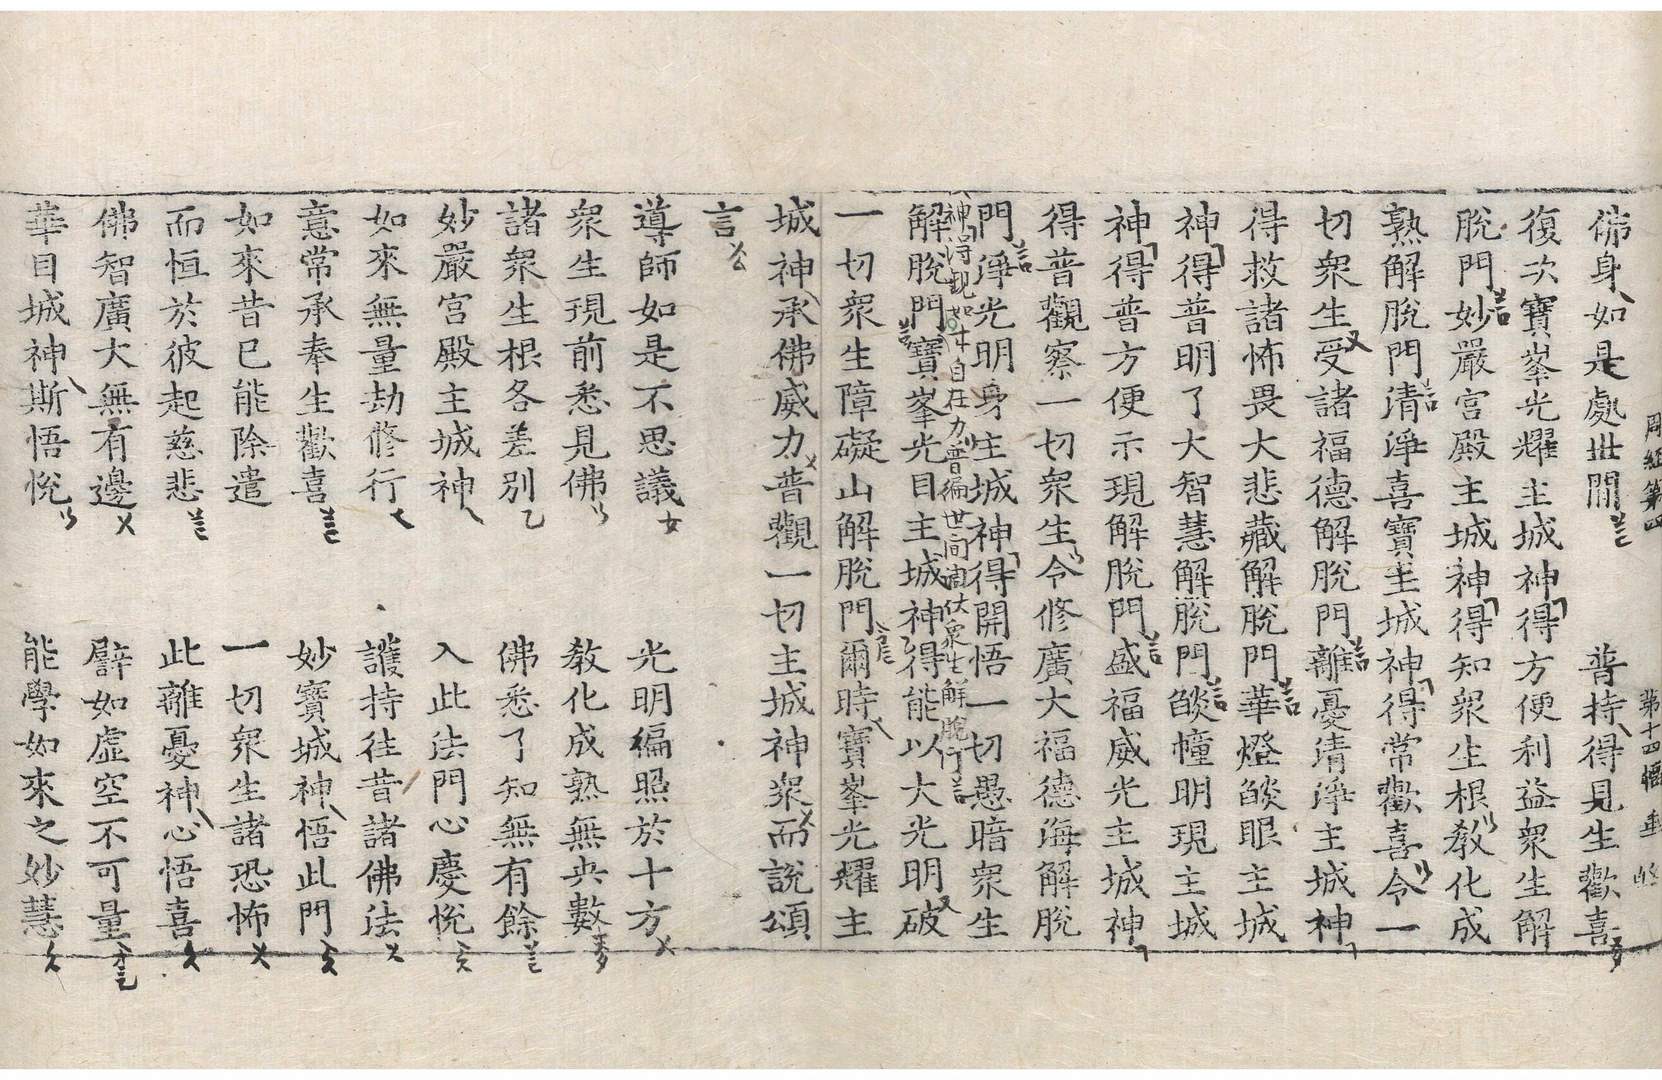 周經第四 第十四幅
佛身如是處世間 普持得見生歡喜
復次寶峯光耀主城神得方便利益衆生解
脫門妙嚴宮殿主城神得知衆生根教化成
熟解脫門清淨喜寶主城神得常歡喜令一
切衆生受諸福德解脫門離憂清淨主城神
得救諸怖畏大悲藏解脫門華燈燄眼主城
神得普明了大智慧解脫門燄幢明現主城
神得普方便示現解脫門盛福威光主城神
得普觀察一切衆生令修廣大福德海解脫
門淨光明身主城神得開悟一切愚暗衆生
神得觀如來自在力普徧世間調伏衆生解脫門
解脫門寶峯光目主城神得能以大光明破
一切衆生障礙山解脫門爾時寶峯光耀主
城神承佛威力普觀一切主城神衆而說頌
言
導師如是不思議 光明徧照於十方
衆生現前悉見佛 教化成熟無央數
諸衆生根各差別 佛悉了知無有餘
妙嚴宮殿主城神 入此法門心慶悅
如來無量劫修行 護持往昔諸佛法
意常承奉生歡喜 妙寶城神悟此門
如來昔已能除遣 一切衆生諸恐怖
而恒於彼起慈悲 此離憂神心悟喜
佛智廣大無有邊 譬如虛空不可量
華目城神斯悟悅 能學如來之妙慧